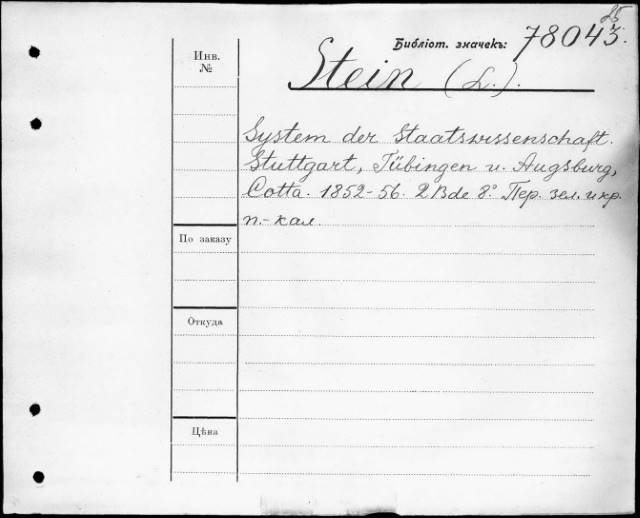 25
Библіот. значекъ: 78043.
Инв.
№
Stein (L.).
System der Staatswissenschaft.
Stuttgart, Tübingen u. Augsburg,
Cotta. 1852-56. 2 Bde 8° Пер. зел. и кр.
п.-кал.
По заказу
Откуда
Цѣна